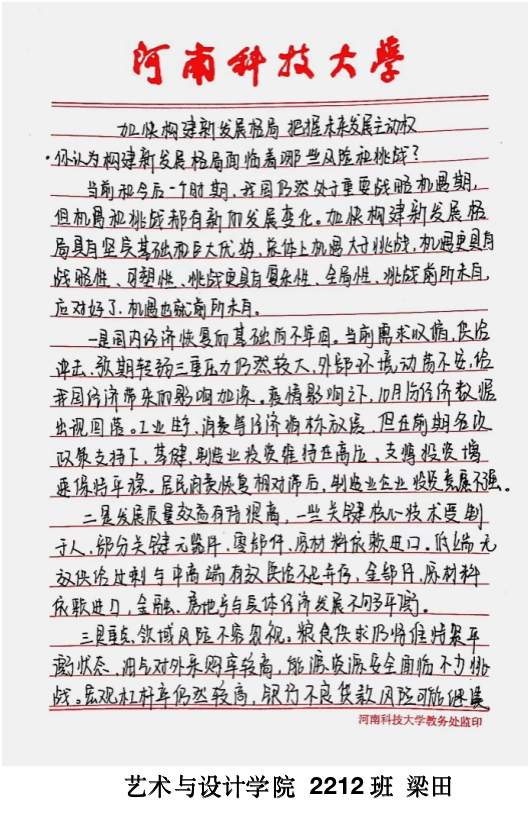 河南科技大学
加快构建新发展格局 把握未来发展主动权
·你认为构建新发展格局面临着哪些风险和挑战?
当前和今后一个时期,我国仍然处于重要战略机遇期,
但机遇和挑战都有新的发展变化。加快构建新发展格
局具有坚实基础和巨大优势,总体上机遇大于挑战,机遇更具有
战略性、可塑性、挑战更具有复杂性、全局性,挑战前所未有,
应对好了,机遇也就前所未有。
一是国内经济恢复的基础尚不牢固。当前需求收缩,供给
冲击、预期转弱三重压力仍然较大,外部环境动荡不安,给
我国经济带来的影响加深。疫情影响之下,10月份经济数据
出现回落。工业生产,消费等经济指标放缓,但在前期各项
政策支持下,基建、制造业投资维持在高位,支撑投资增
速保持平稳。居民消费恢复相对滞后,制造业企业投资意愿不强。
二是发展质量效益有待提高,一些关键核心技术受制
于人,部分关键元器件、零部件、原材料依赖进口。低端无
效供给过剩与中高端有效供给不足并存,全部件,原材料
依赖进口,金融、房地产与实体经济发展不够平衡。
三是重点领域风险不容忽视。粮食供求仍将维持紧平
衡状态,油气对外采购率较高,能源资源安全面临不少挑
战。宏观杠杆率仍然较高,银行不良贷款风险可能继续
河南科技大学教务处监印
艺术与设计学院 2212班 梁田